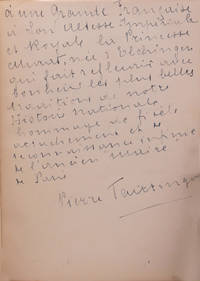 à une Grande Française
à Son Altesse Impériale
et Royale la Princesse
Murat, née d'Elchingen
qui fait refleurir avec
bonheur les plus belles
traditions de notre
Histoire nationale
hommage de fidèle
attachement et de
reconnaissance intime
de l'ancien Maire
de Paris
Pierre Taittinger